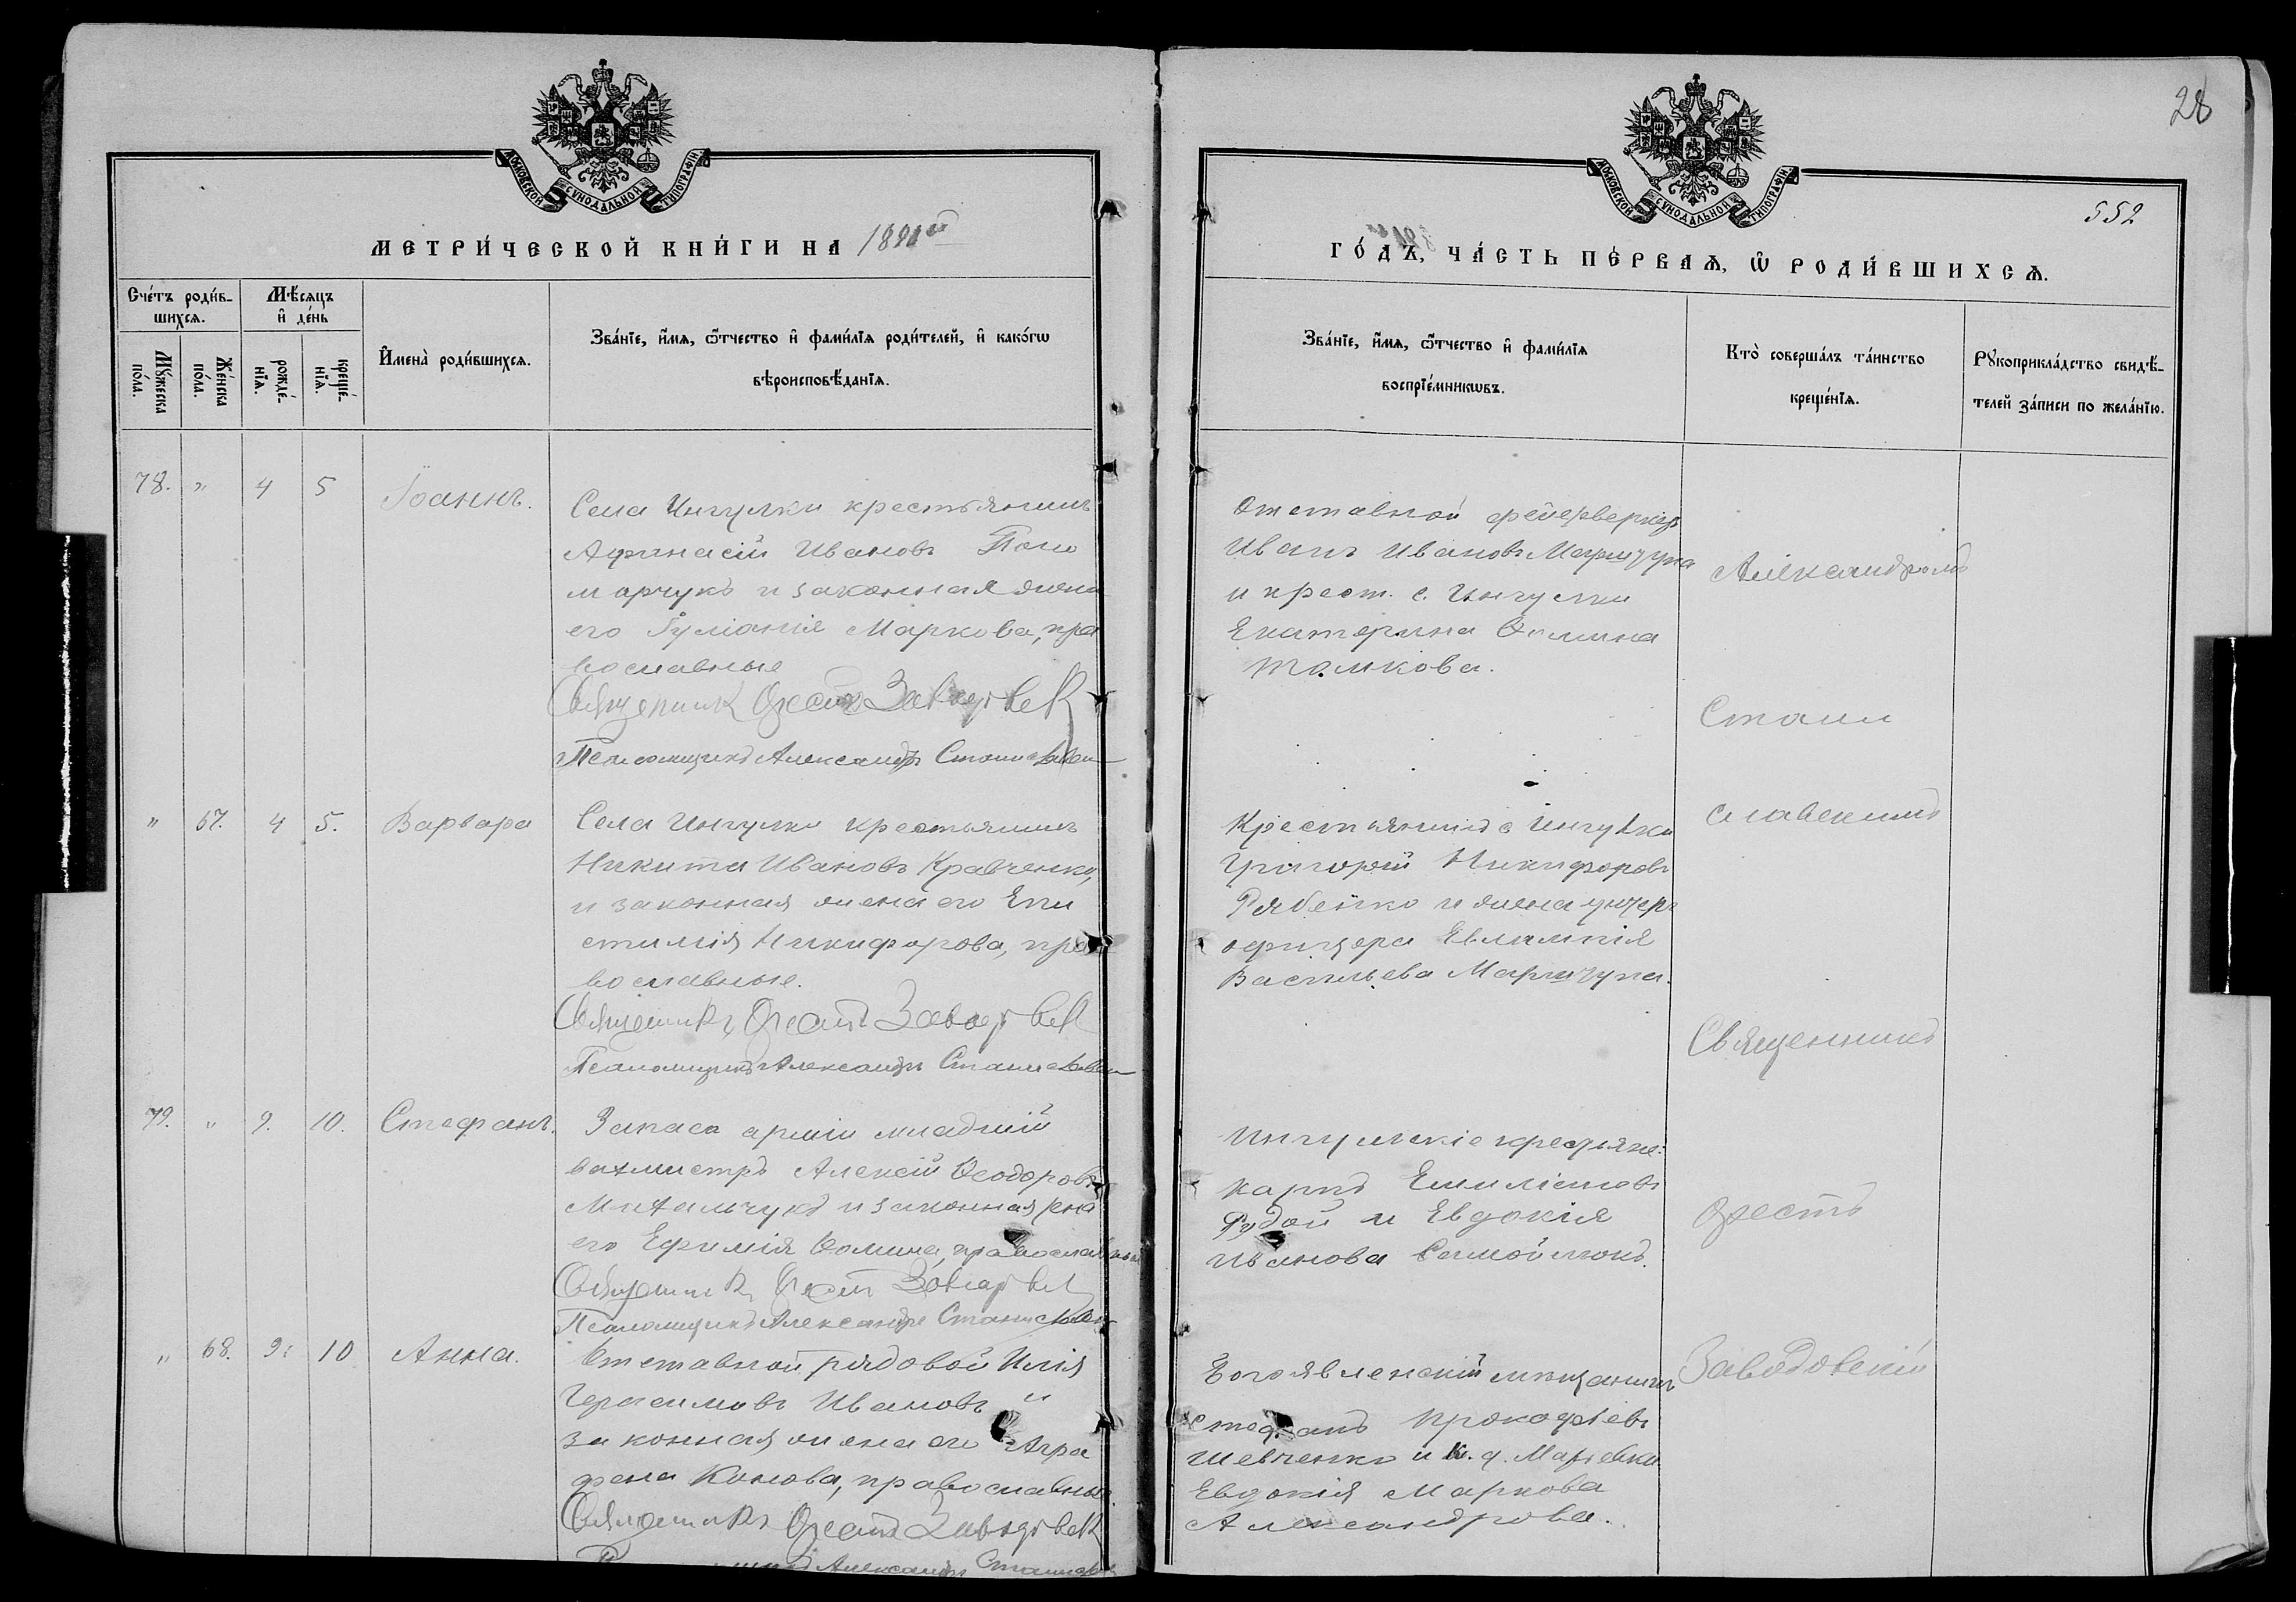 28
МОСКОВСКОЙ СѴНОДАЛЬНОЙ ТИПОГРАФІИ
МОСКОВСКОЙ СѴНОДАЛЬНОЙ ТИПОГРАФІИ
552
МЕТРИ́ЧЕСКОЙ КНИ́ГИ НА 1891й
ГО́ДЪ, ЧА́СТЬ ПЕ́РВАѦ, Ѡ҆ РОДИ́ВШИХСѦ.
Сче́тъ роди́в-
шихсѧ.
Мѣ́сяцъ
и҆ де́нь
Мꙋ́жеска по́ла.
Же́нска по́ла.
рожде́-
нїѧ.
креще́-
нїѧ.
И҆мена̀ роди́вшихсѧ.
Зва́нїе, и҆́мѧ, ѻ҆́тчество и҆ фами́лїѧ роди́телей, и҆ како́гѡ
вѣроисповѣ́данїѧ.
Зва́нїе, и҆́мѧ, ѻ҆́тчество и҆ фами́лїѧ
воспрїе́мникѡвъ.
Кто̀ соверша́лъ та́инство
креще́нїѧ.
Рꙋкоприкла́дство свидѣ́-
телей за́писи по жела́нїю.
78. " 4 5 Іоаннъ.
Села Ингулки крестьянинъ
Афанасій Ивановъ
марчукъ и законная жена
его Іуліанія Маркова, пра
вославные
Священникъ Орестъ Заводовск
Псаломщикъ Александръ Станиславск
Отставной фейерверкеръ
Иванъ Ивановъ
и крест. с. Ингулки
Екатерина Ѳомина
Томкова.
Александромъ
Стани
славскимъ
Священникъ
Орестъ
Заводовскій
" 67. 4 5. Варвара
Села Ингулки крестьянинъ
Никита Ивановъ Кравченко,
и законная жена его Епи
стимія Никифорова, пра
вославные.
Священникъ Орестъ Заводовск
Псаломщикъ Александръ Станиславск
Крестьянинъ с Ингулки
Григорій Никифоровъ
Рябейко и жена унтеръ
офицера Евлампія
Васильева
79. " 9. 10. Стефанъ.
Запаса арміи младшій
вахмистръ Алексій Ѳеодоровъ
Михальчукъ и законная жена
его Ефимія Ѳомина, православные
Священникъ Орестъ Заводовск
Псаломщикъ Александръ Станиславск
Ингульскіе крестьяне:
Карпъ Емиліановъ
Рудой и Евдокія
Иванова Самойлюкъ.
" 68. 9. 10 Анна.
Отставной рядовой Илія
Герасимовъ Ивановъ и
законная жена его Агра
фена Конова, православные.
Священникъ Орестъ Заводовск
Александръ Станиславск
Богоявленскій мѣщанинъ
Стефанъ Прокофіевъ
Шевченко и к. д. Марьевки
Евдокія Маркова
Александрова.